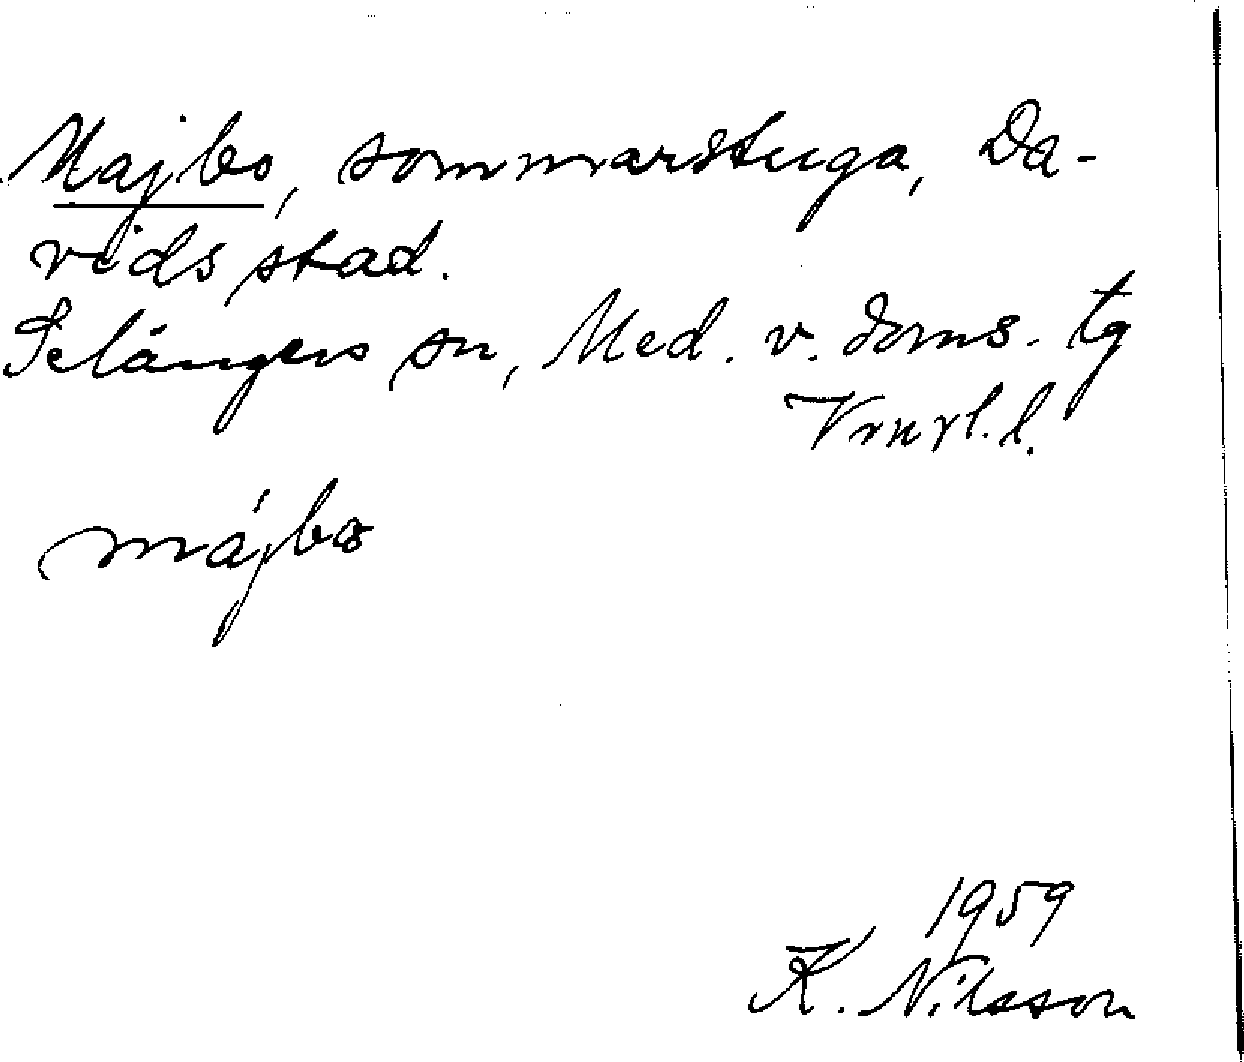 Majbo, sommarstuga, Da-
vids stad.
Selångers sn, Med. v. doms. tg
Vrnrl. l.
májbo
1959
K. Nilsson